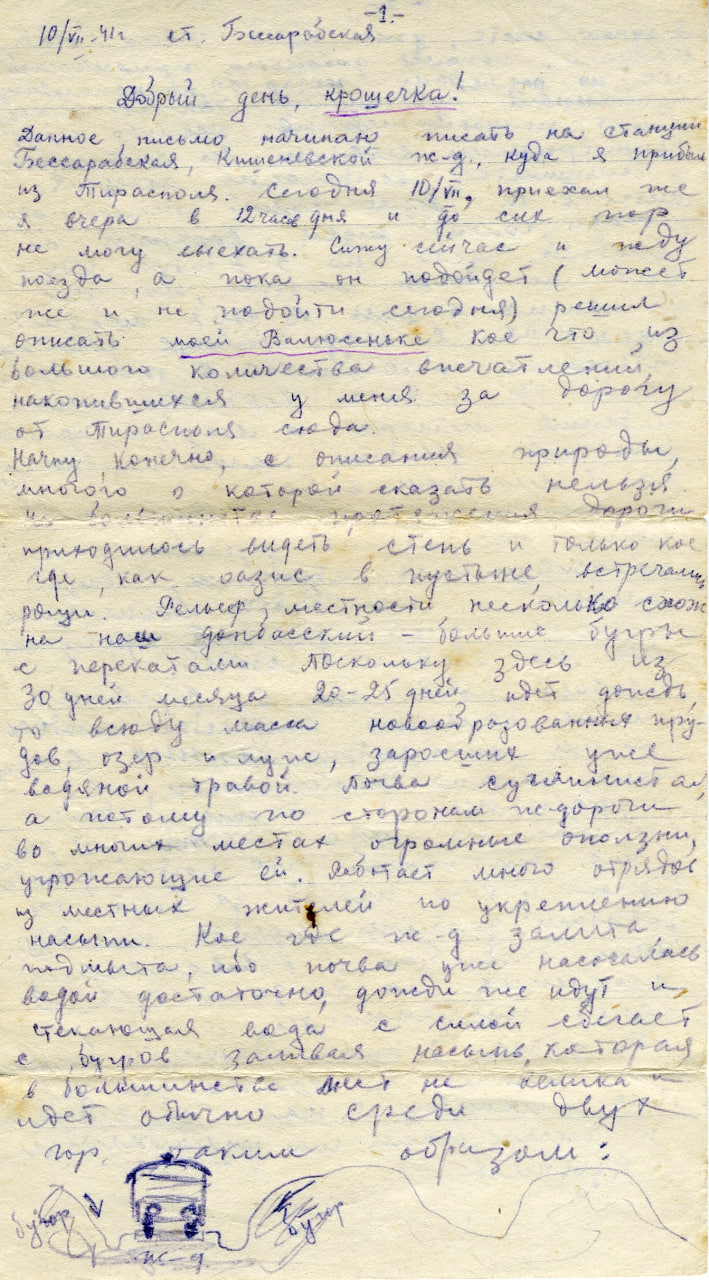 -1-
10/VII-41г. ст. Бессарабская
Добрый день, крошечка!
Данное письмо начинаю писать на станции
Бессарабская, Кишеневской ж-д., куда я прибыл
из Тирасполя. Сегодня 10/VII, приехал же
я вчера в 12 часов дня и до сих пор
не могу выехать. Сижу сейчас и жду
поезда, а пока он подойдет (может
же и не подойти сегодня) решил
описать моей Валюсеньке кое что из
большого количества впечатлений,
накопившихся у меня за дорогу
от Тирасполя сюда.
Начну, конечно, с описания природы,
много о которой сказать нельзя.
На большинстве протяжения дороги
приходилось видеть степь и только кое
где, как оазис в пустыне, встречались
рощи. Рельеф местности несколько схож
на наш донбасский - большие бугры
с перекатами. Поскольку здесь из
30 дней месяца 20-25 дней идет дождь,
то всюду масса новообразованных пру-
дов, озер и луж, заросших уже
водяной травой. Почва суглинистая,
а потому по сторонам ж-дороги
во многих местах огромные оползни,
угрожающие ей. Работает много отрядов
из местных жителей по укреплению
насыпи. Кое где ж-д залита,
подмыта, ибо почва уже насосалась
водой достаточно, дожди же идут и
стекающая вода с силой сбегает
с бугров заливая насыпь, которая
в большинстве мест не велика и
идет обычно среди двух
гор таким образом:
бугор
бугор
ж-д